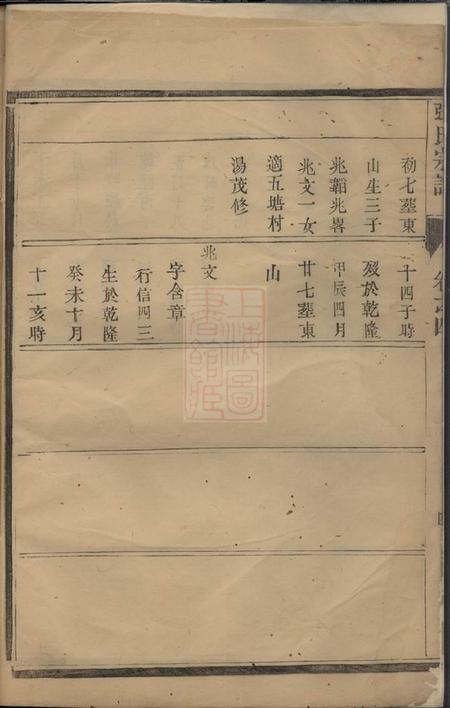 張氏宗譜
卷之四
初七塟東
山生三子
兆韜兆畧
兆文一女
適五塘村
湯茂修
十四子時
歿於乾隆
甲辰四月
廿七塟東
山
兆文
字含章
行信四三
生於乾隆
癸未十月
十一亥時
上海圖書館藏